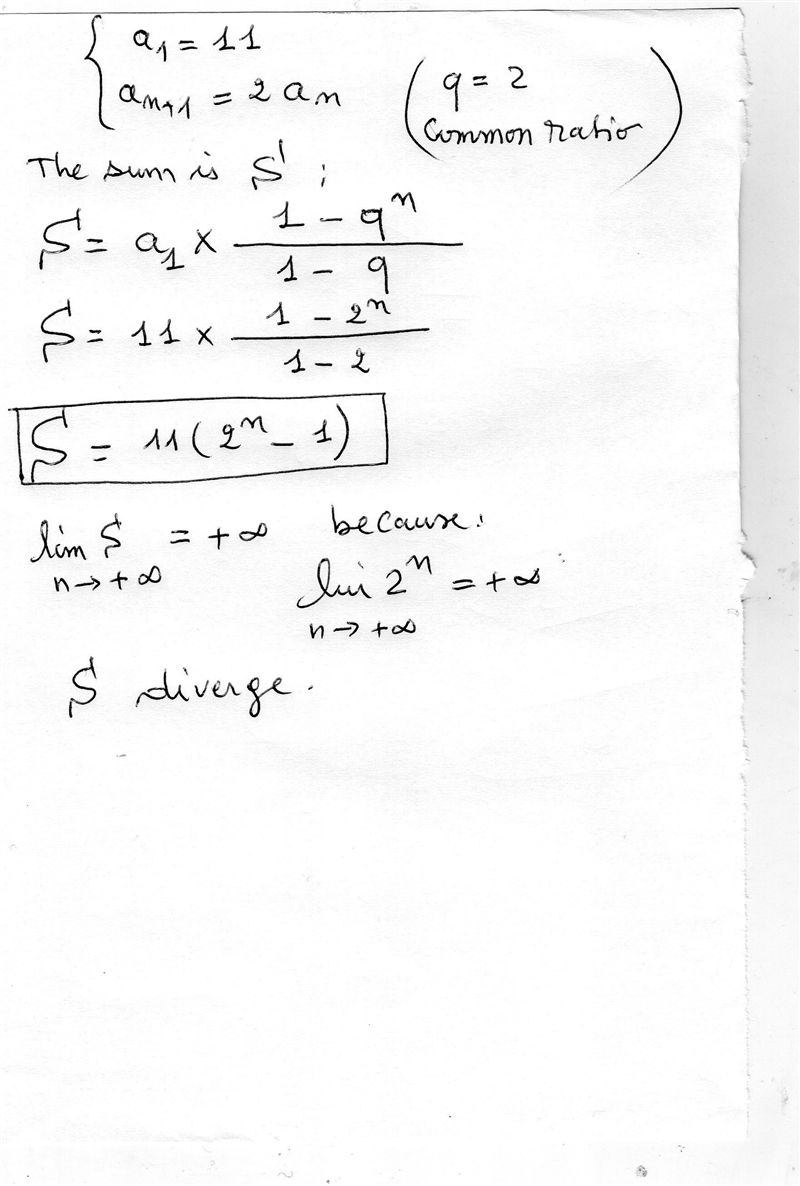 a₁ = 11
aₙ₊₁ = 2 aₙ
( q = 2
Common ratio )
The sum is S ;
S = a₁ × (1 - qⁿ) / (1 - q)
S = 11 × (1 - 2ⁿ) / (1 - 2)
S = 11 ( 2ⁿ - 1 )
lim S = +∞ because:
n → +∞
lim 2ⁿ = +∞
n → +∞
S diverge.